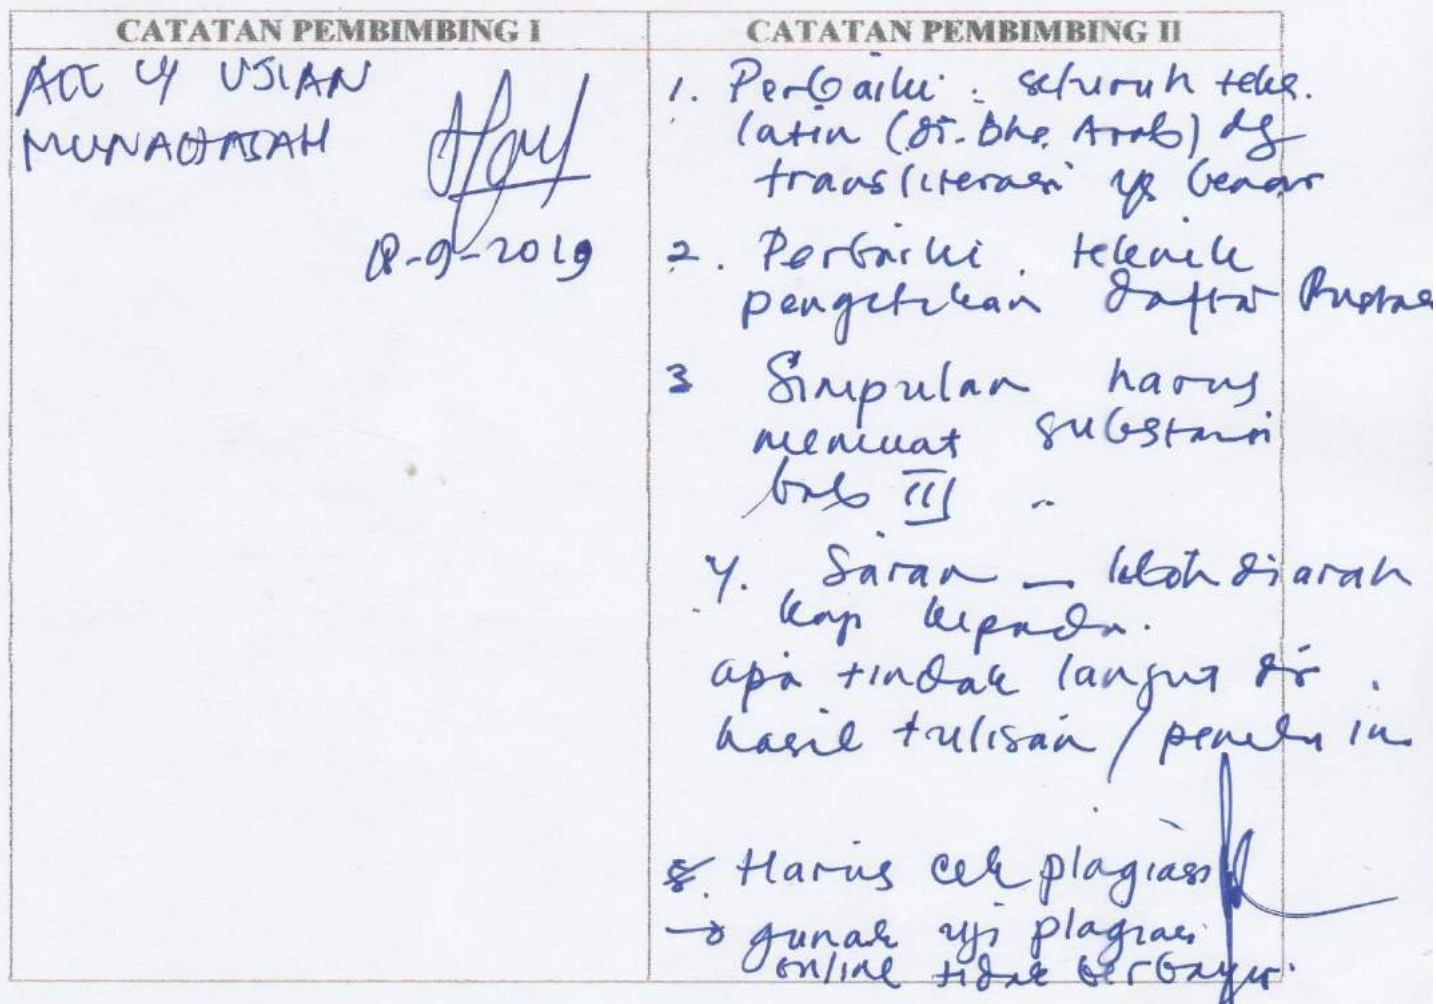 CATATAN PEMBIMBING I
ACC U/ UJIAN
MUNAQASAH
18-9-2019
CATATAN PEMBIMBING II
1. Perbaiki : seluruh teks.
latin (dr. Bhs. Arab) dg
transliterasi yg benar
2. Perbaiki . teknik
pengetikan daftar Pustaka
3 Simpulan harus
memuat substansi
bab III
4. Saran — lebih diarah
kan kepada.
apa tindak lanjut dr.
hasil tulisan /
5. Harus cek plagiasi
→ gunak uji plagiasi
online tidak berbayar.